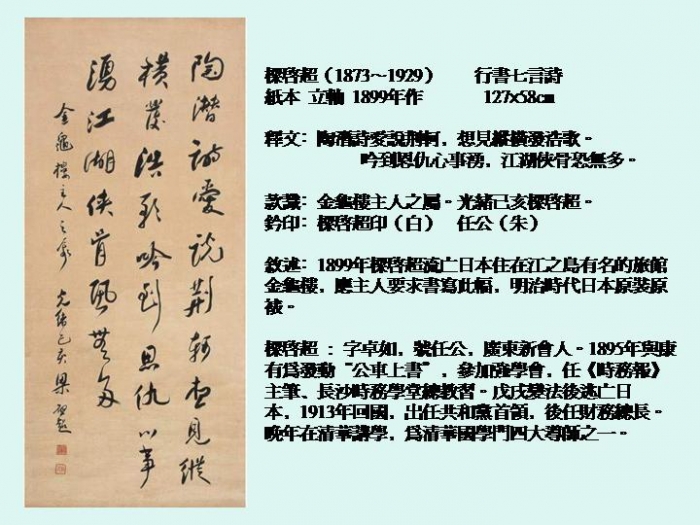 陶潛詩愛說荊軻想見縱
橫發浩歌吟到恩仇心事
湧江湖俠骨恐無多
金龜樓主人之屬 光緒己亥梁啓超
樑啓超（1873～1929） 行書七言詩
紙本 立軸 1899年作 127x58cm
釋文：陶潛詩愛說荊軻，想見縱橫發浩歌。
吟到恩仇心事湧，江湖俠骨恐無多。
款識：金龜樓主人之屬。光緒己亥樑啓超。
鈐印：樑啓超印（白） 任公（朱）
敘述：1899年樑啓超流亡日本住在江之島有名的旅館
金龜樓，應主人要求書寫此幅，明治時代日本原裝原
裱。
樑啓超 ：字卓如，號任公，廣東新會人。1895年與康
有爲發動“公車上書”，參加強學會，任《時務報》
主筆、長沙時務學堂總教習。戊戌變法後逃亡日
本，1913年回國，出任共和黨首領，後任財務總長。
晚年在清華講學，爲清華國學門四大導師之一。